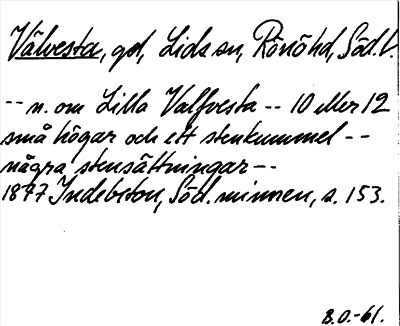 Välvesta, gd, Lids sn, Rönö hd, Söd.l.
-- n. om Lilla Valfvesta -- 10 eller 12
små högar och ett stenkummel --
några stensättningar --
1877 Indebetou, Söd. minnen, s. 153.
B.O.-61.